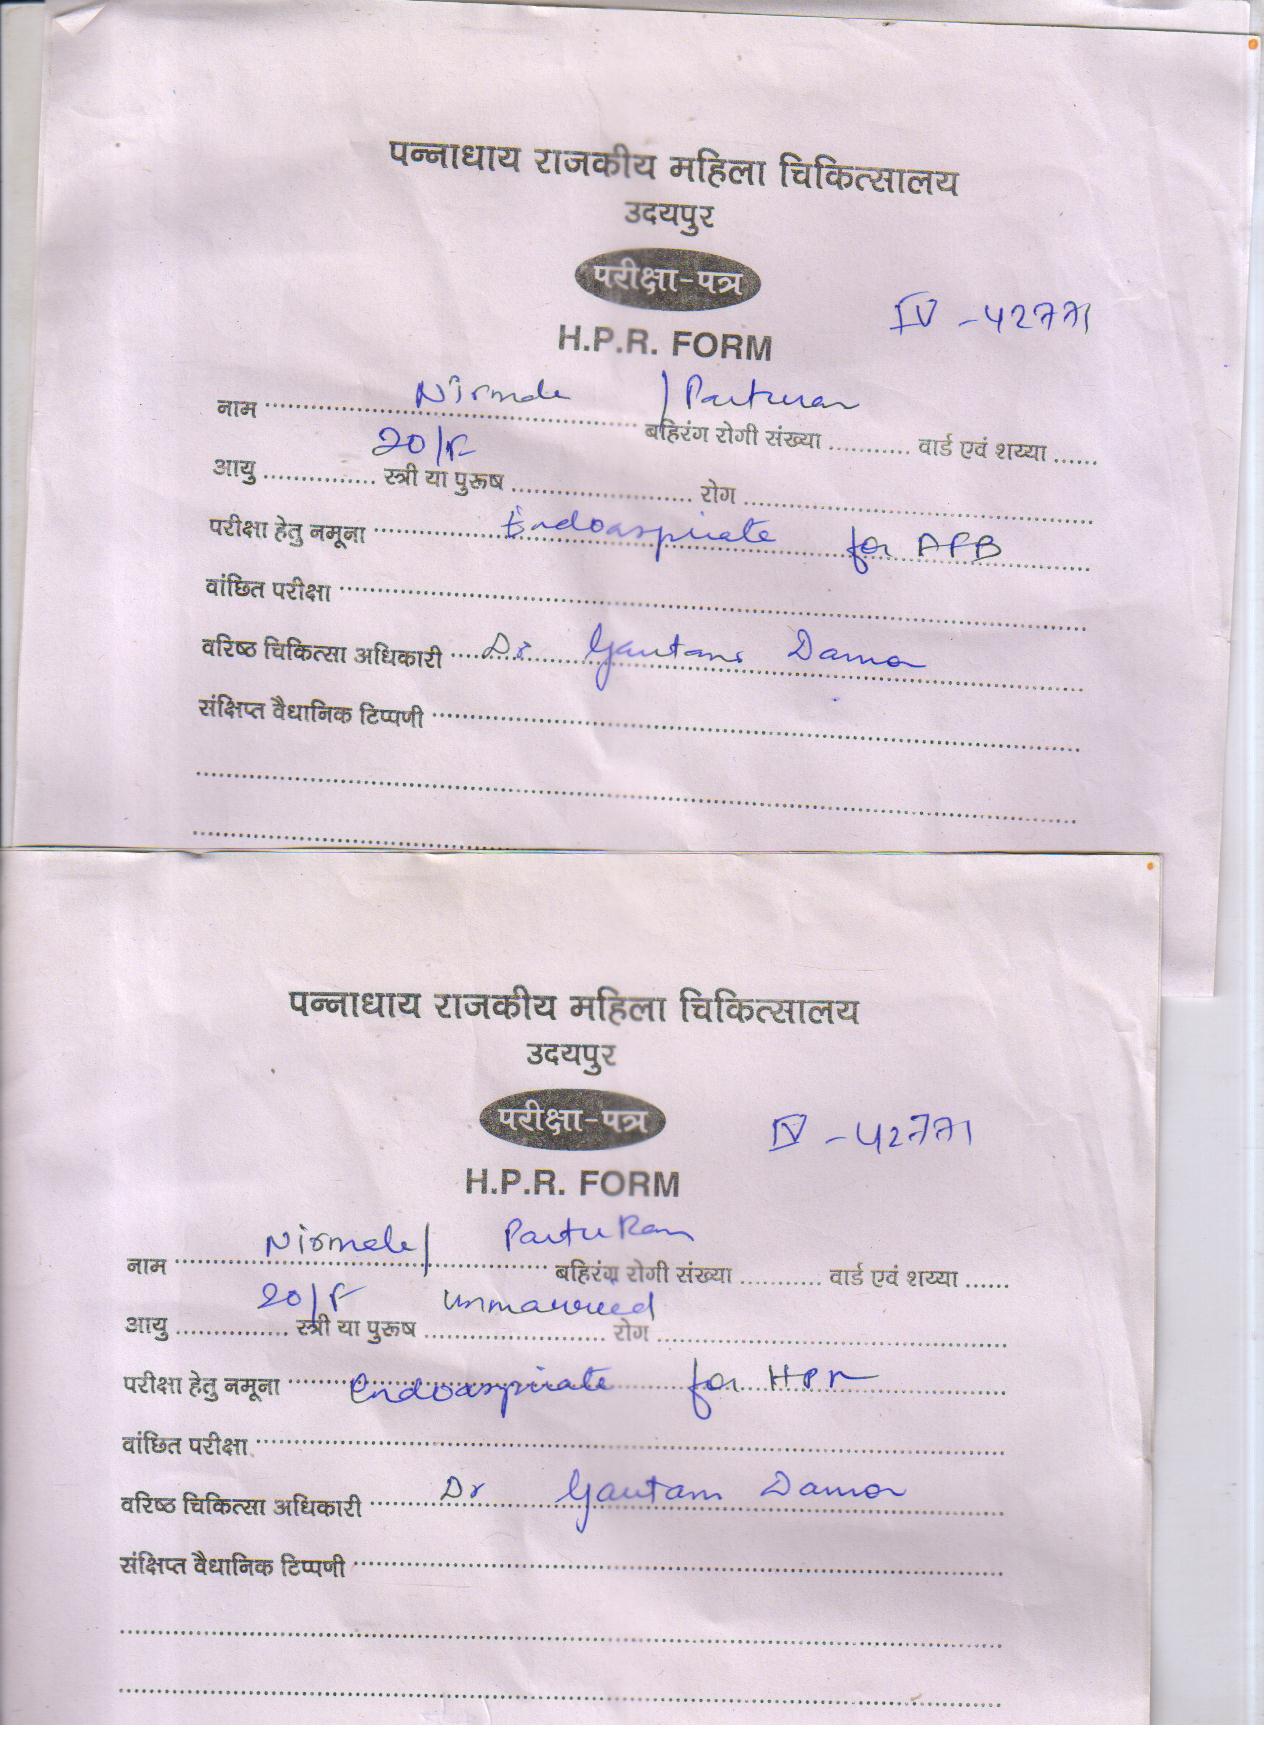 पन्नाधाय राजकीय महिला चिकित्सालय
उदयपुर
परीक्षा-पत्र
IV - 42771
H.P.R. FORM
नाम Nirmala / बहिरंग रोगी संख्या .......... वार्ड एवं शय्या ......
आयु 20/F स्त्री या पुरूष रोग
परीक्षा हेतु नमूना Endoaspirate for AFB
वांछित परीक्षा
वरिष्ठ चिकित्सा अधिकारी Dr Gautam Damor
संक्षिप्त वैधानिक टिप्पणी
पन्नाधाय राजकीय महिला चिकित्सालय
उदयपुर
परीक्षा-पत्र
IV - 42771
H.P.R. FORM
नाम Nirmala / Partu Ram बहिरंग रोगी संख्या .......... वार्ड एवं शय्या ......
आयु 20/F स्त्री या पुरूष unmarried रोग
परीक्षा हेतु नमूना Endoaspirate for HPR
वांछित परीक्षा
वरिष्ठ चिकित्सा अधिकारी Dr Gautam Damor
संक्षिप्त वैधानिक टिप्पणी